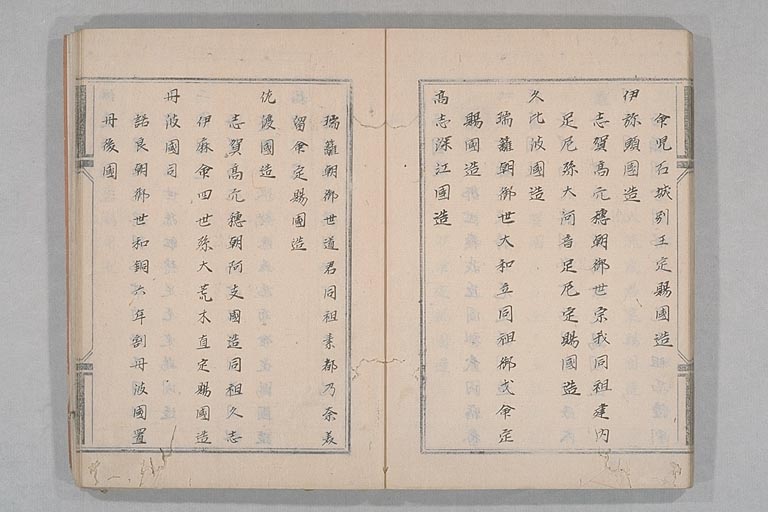 命児石城別王定賜國造
伊弥頭國造
志賀高穴穂朝御世宗我同祖建内
足尼孫大河音足尼定賜國造
久比岐國造
瑞籬朝御世大和直同祖御戈命定
賜國造
高志深江國造
瑞籬朝御世道君同祖素都乃奈美
留命定賜國造
佐渡國造
志賀高穴穂朝阿支國造同祖久志
伊麻命四世孫大荒木直定賜國造
丹波國司
諾良朝御世和銅六年割丹波國置
丹後國